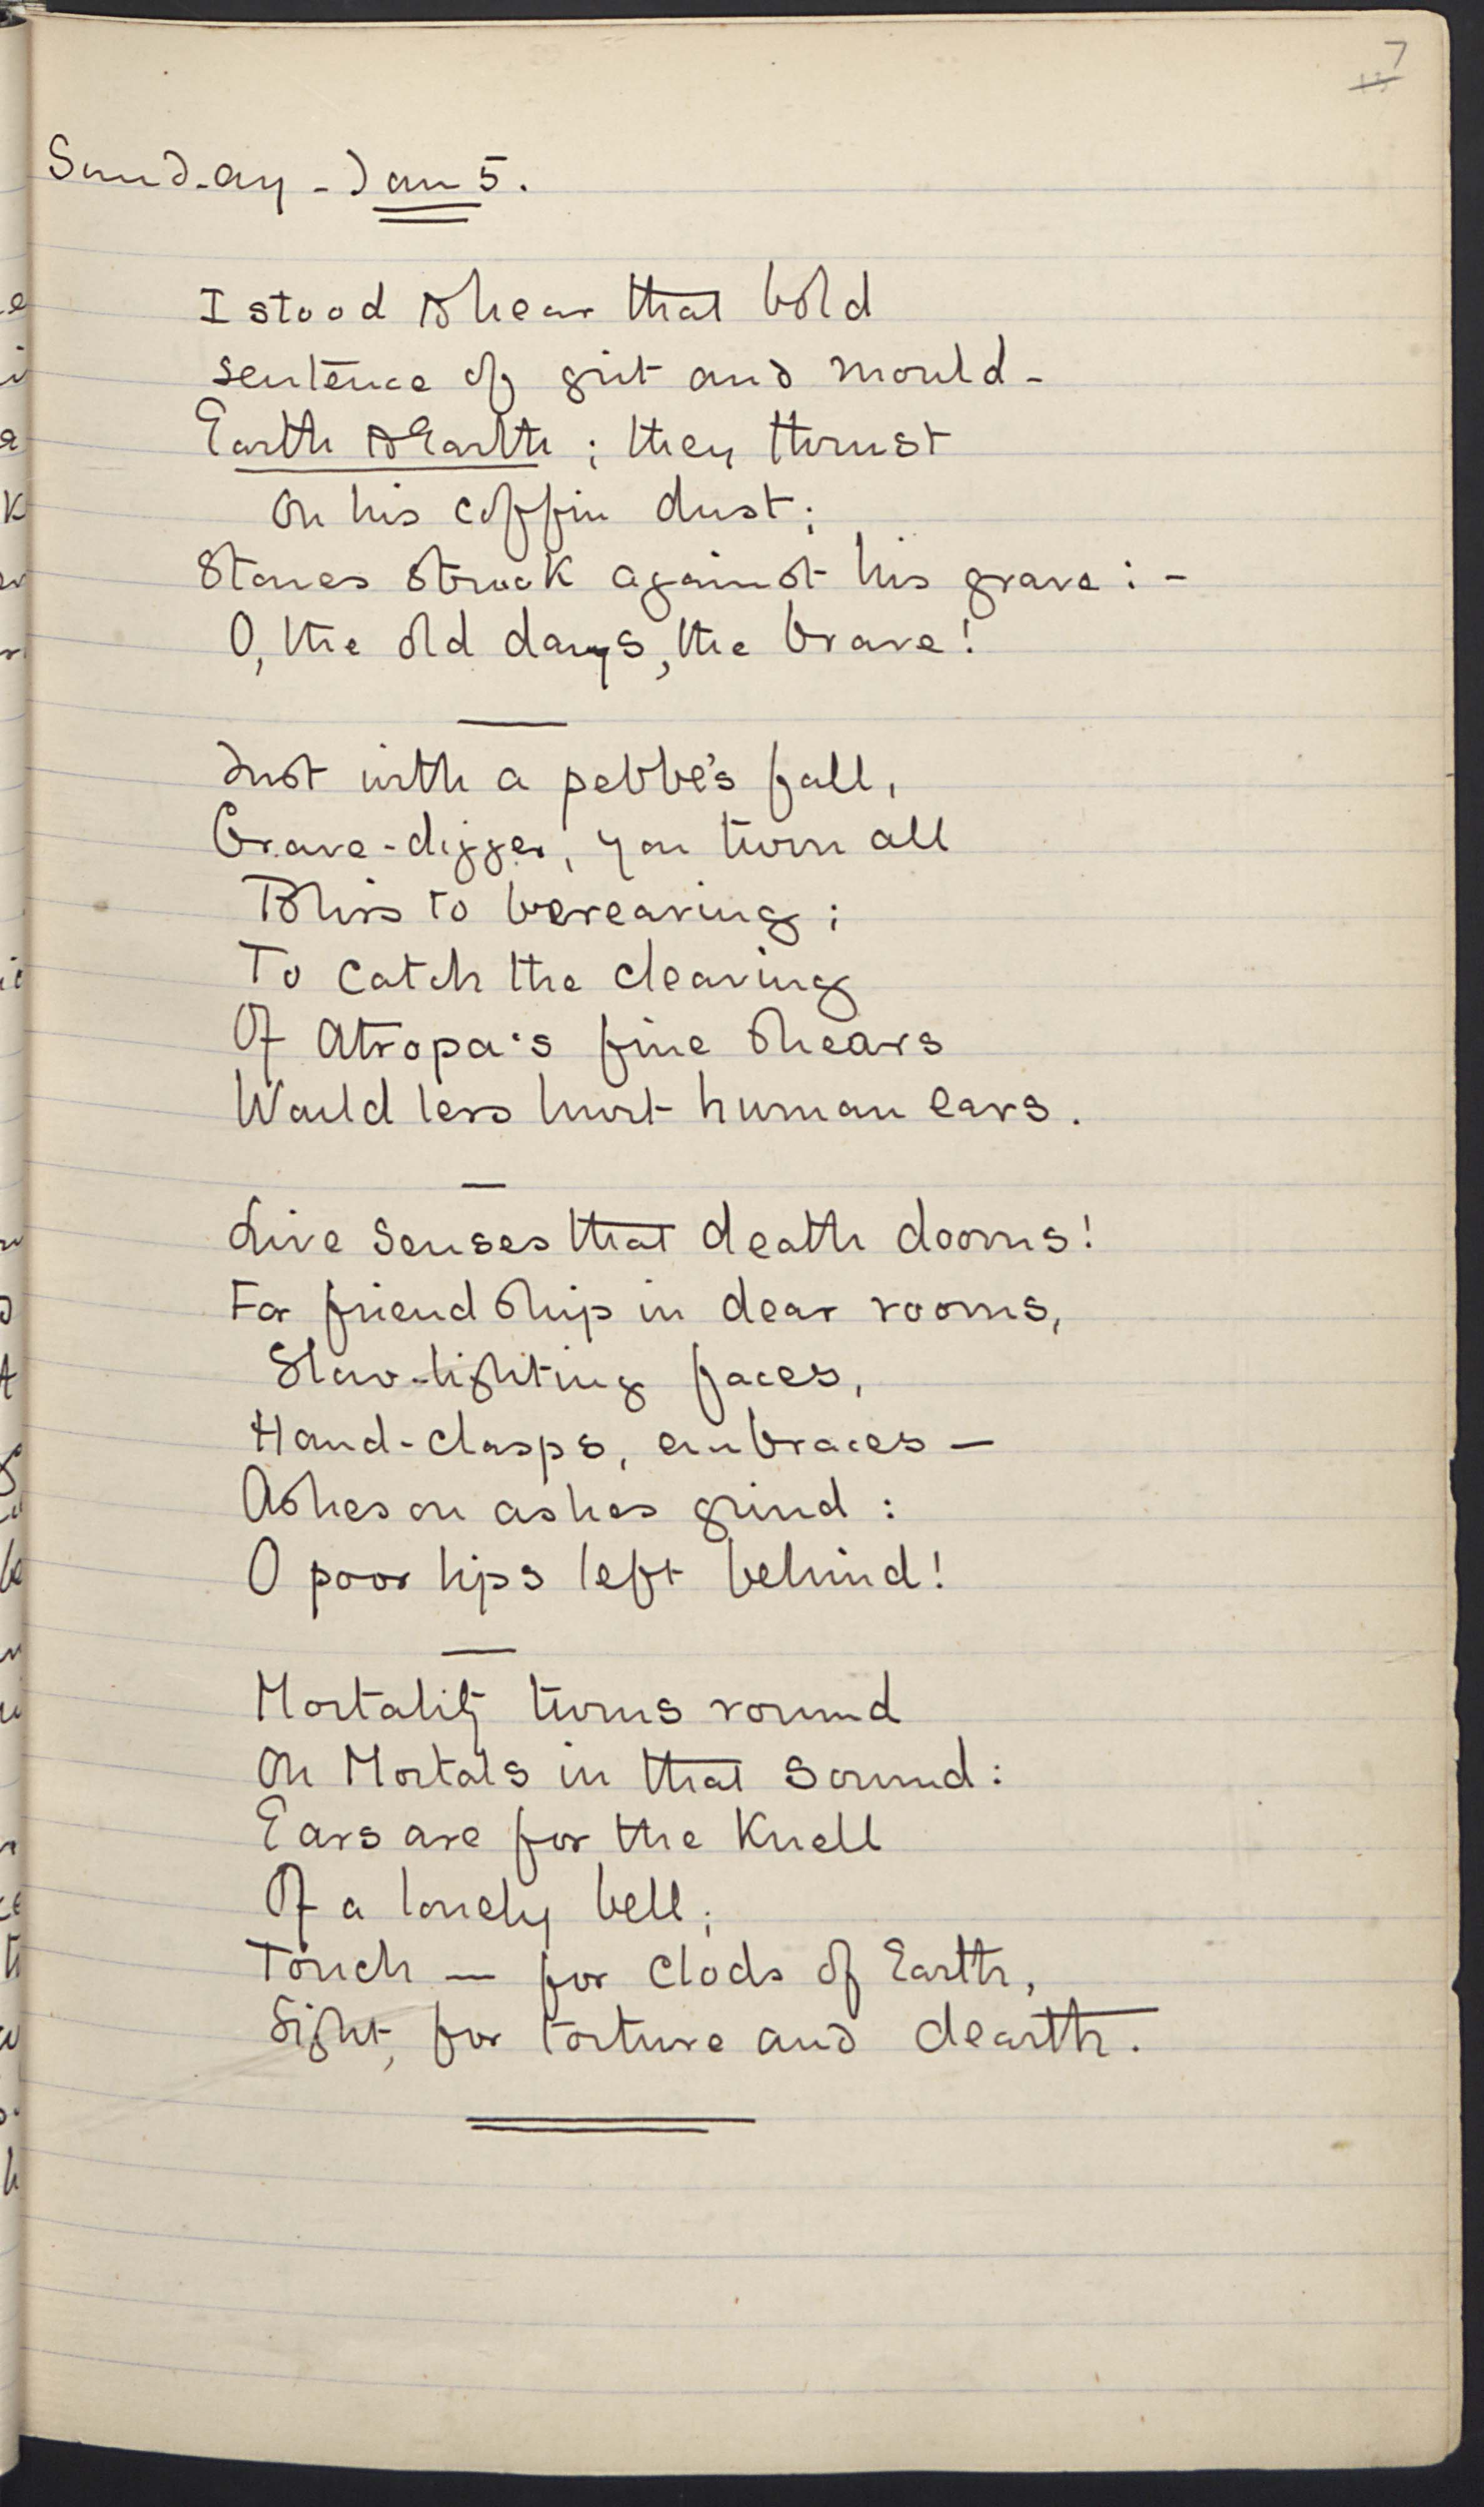 7
Sunday - Jan 5.
I stood to hear that bold
sentence of grit and mould -
Earth to Earth ; they thrust
On his coffin dust ;
Stones struck against his grave : -
O, the old days, the brave !
Just with a pebbe's fall,
Grave-digger, you turn all
Bliss to bereaving ;
To catch the cleaving
Of Atropa's fine shears
Would less hurt human ears.
Live senses that death dooms!
For friendship in dear rooms,
Slow-lighting faces,
Hand-clasps, embraces —
Ashes on ashes grind :
O poor lips left behind!
Mortality turns round
On Mortals in that sound :
Ears are for the Knell
Of a lonely bell ;
Touch — for clods of Earth,
Sight, for torture and dearth.